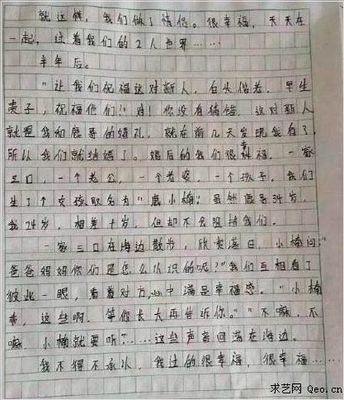 就这样，我们做了情侣。很幸福，天天在
一起，过着我们的2人世界……
半年后。
"让我们祝福这对新人，白头偕老，早生
贵子，祝福他们！"对！你没有猜错，这对新人
就是我和鹿哥的婚礼，就在前几天发现我有了，
所以我们就结婚了。婚后的我们很幸福，一家
三口，一个老公，一个老婆，一个孩子，我们
生了个女孩取名为"鹿小楠"虽然鹿哥34岁，
我24岁，相差十岁，但却不会阻挡我们。
一家三口在海边散步，欣赏落日，小楠问："
爸爸妈妈你们是怎么认识的呢？"我们互相看了
彼此一眼，看着对方，心中满是幸福感。"小楠
乖，这些啊，等你长大再告诉你。""不嘛，不
嘛，小楠就要听"……这些声音回荡在海边。
我不得不承认，我过的很幸福，很幸福……
求艺网 Qeo.cn